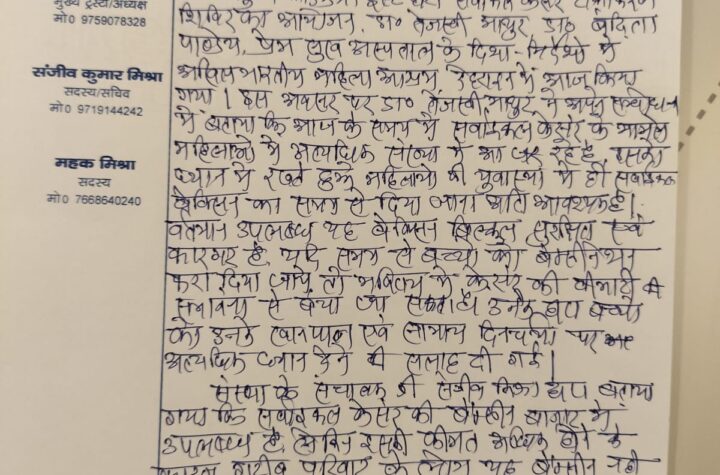 मुख्य ट्रस्टी/अध्यक्ष
मो0 9759078328
संजीव कुमार मिश्रा
सदस्य/सचिव
मो0 9719144242
महक मिश्रा
सदस्य
मो0 7668640240
शिविर का आयोजन डा० तेजस्वी माथुर डा० वंदिता
पाण्डेय, प्रेम सुख अस्पताल के दिशा-निर्देशो में
अखिल भारतीय महिला आश्रम, देहरादून में आज किया
गया। इस अवसर पर डा० तेजस्वी माथुर ने अपने सम्बोधन
में बताया कि आज के समय में सर्वाइकल कैंसर के मामले
महिलाओ में अत्यधिक संख्या में आ रहे है इसको
ध्यान में रखते हुये महिलाओ की युवावस्था में ही सर्वाइकल
वैक्सिन का समय से दिया जाना अति आवश्यक है।
वर्तमान उपलब्ध यह वैक्सिन बिल्कुल सुरक्षित एवं
कारगर है, यदि समय से बच्चो को वैक्सीनेशन
करा दिया जाये तो भविष्य में कैंसर की बीमारी की
सम्भावना से बचा जा सकता है। उनके द्वारा बच्चो
को उनके खानपान एवं सामान्य दिनचर्या पर
अत्यधिक ध्यान देने की सलाह दी गई।
संस्था के संचालक श्री संजीव मिश्रा द्वारा बताया
गया कि सर्वाइकल कैंसर की वैक्सीन बाजार में
उपलब्ध है, लेकिन इसकी कीमत अधिक होने के
कारण गरीब परिवार के लोग यह वैक्सीन नही